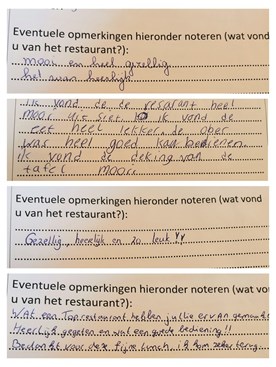 Eventuele opmerkingen hieronder noteren (wat vond
u van het restaurant?):
mooi en heel gezellig
het was heerlijk
ik vond de de resparant heel
mooi ik vond de
eet heel lekker. de ober
was heel goed kan bedienen.
ik vond de deking van de
tafel moois
Eventuele opmerkingen hieronder noteren (wat vond
u van het restaurant?):
Gezellig, heerlijk en zo leuk!!
Eventuele opmerkingen hieronder noteren (wat vond
u van het restaurant?):
Wat een Toprestaurant hebben jullie ervan gemaakt
Heerlijk gegeten en wat een goede bediening!!
Bedankt voor deze fijne lunch, ik kom zeker terug